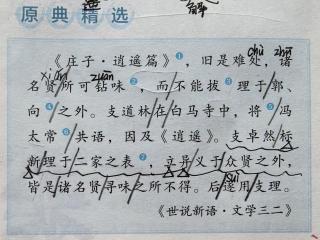 原典精选
解
chù zhū
《庄子·逍遥篇》❶,旧是难处,诸
xián zuān
名贤所可钻味❷,而不能拔❸理于郭、
向❹之外。支道林在白马寺中,将❺冯
太常❻共语,因及《逍遥》。支卓然标
新理于二家之表❼,立异义于众贤之外,
皆是诸名贤寻味之所不得。后遂用支理。
suì
《世说新语·文学三二》